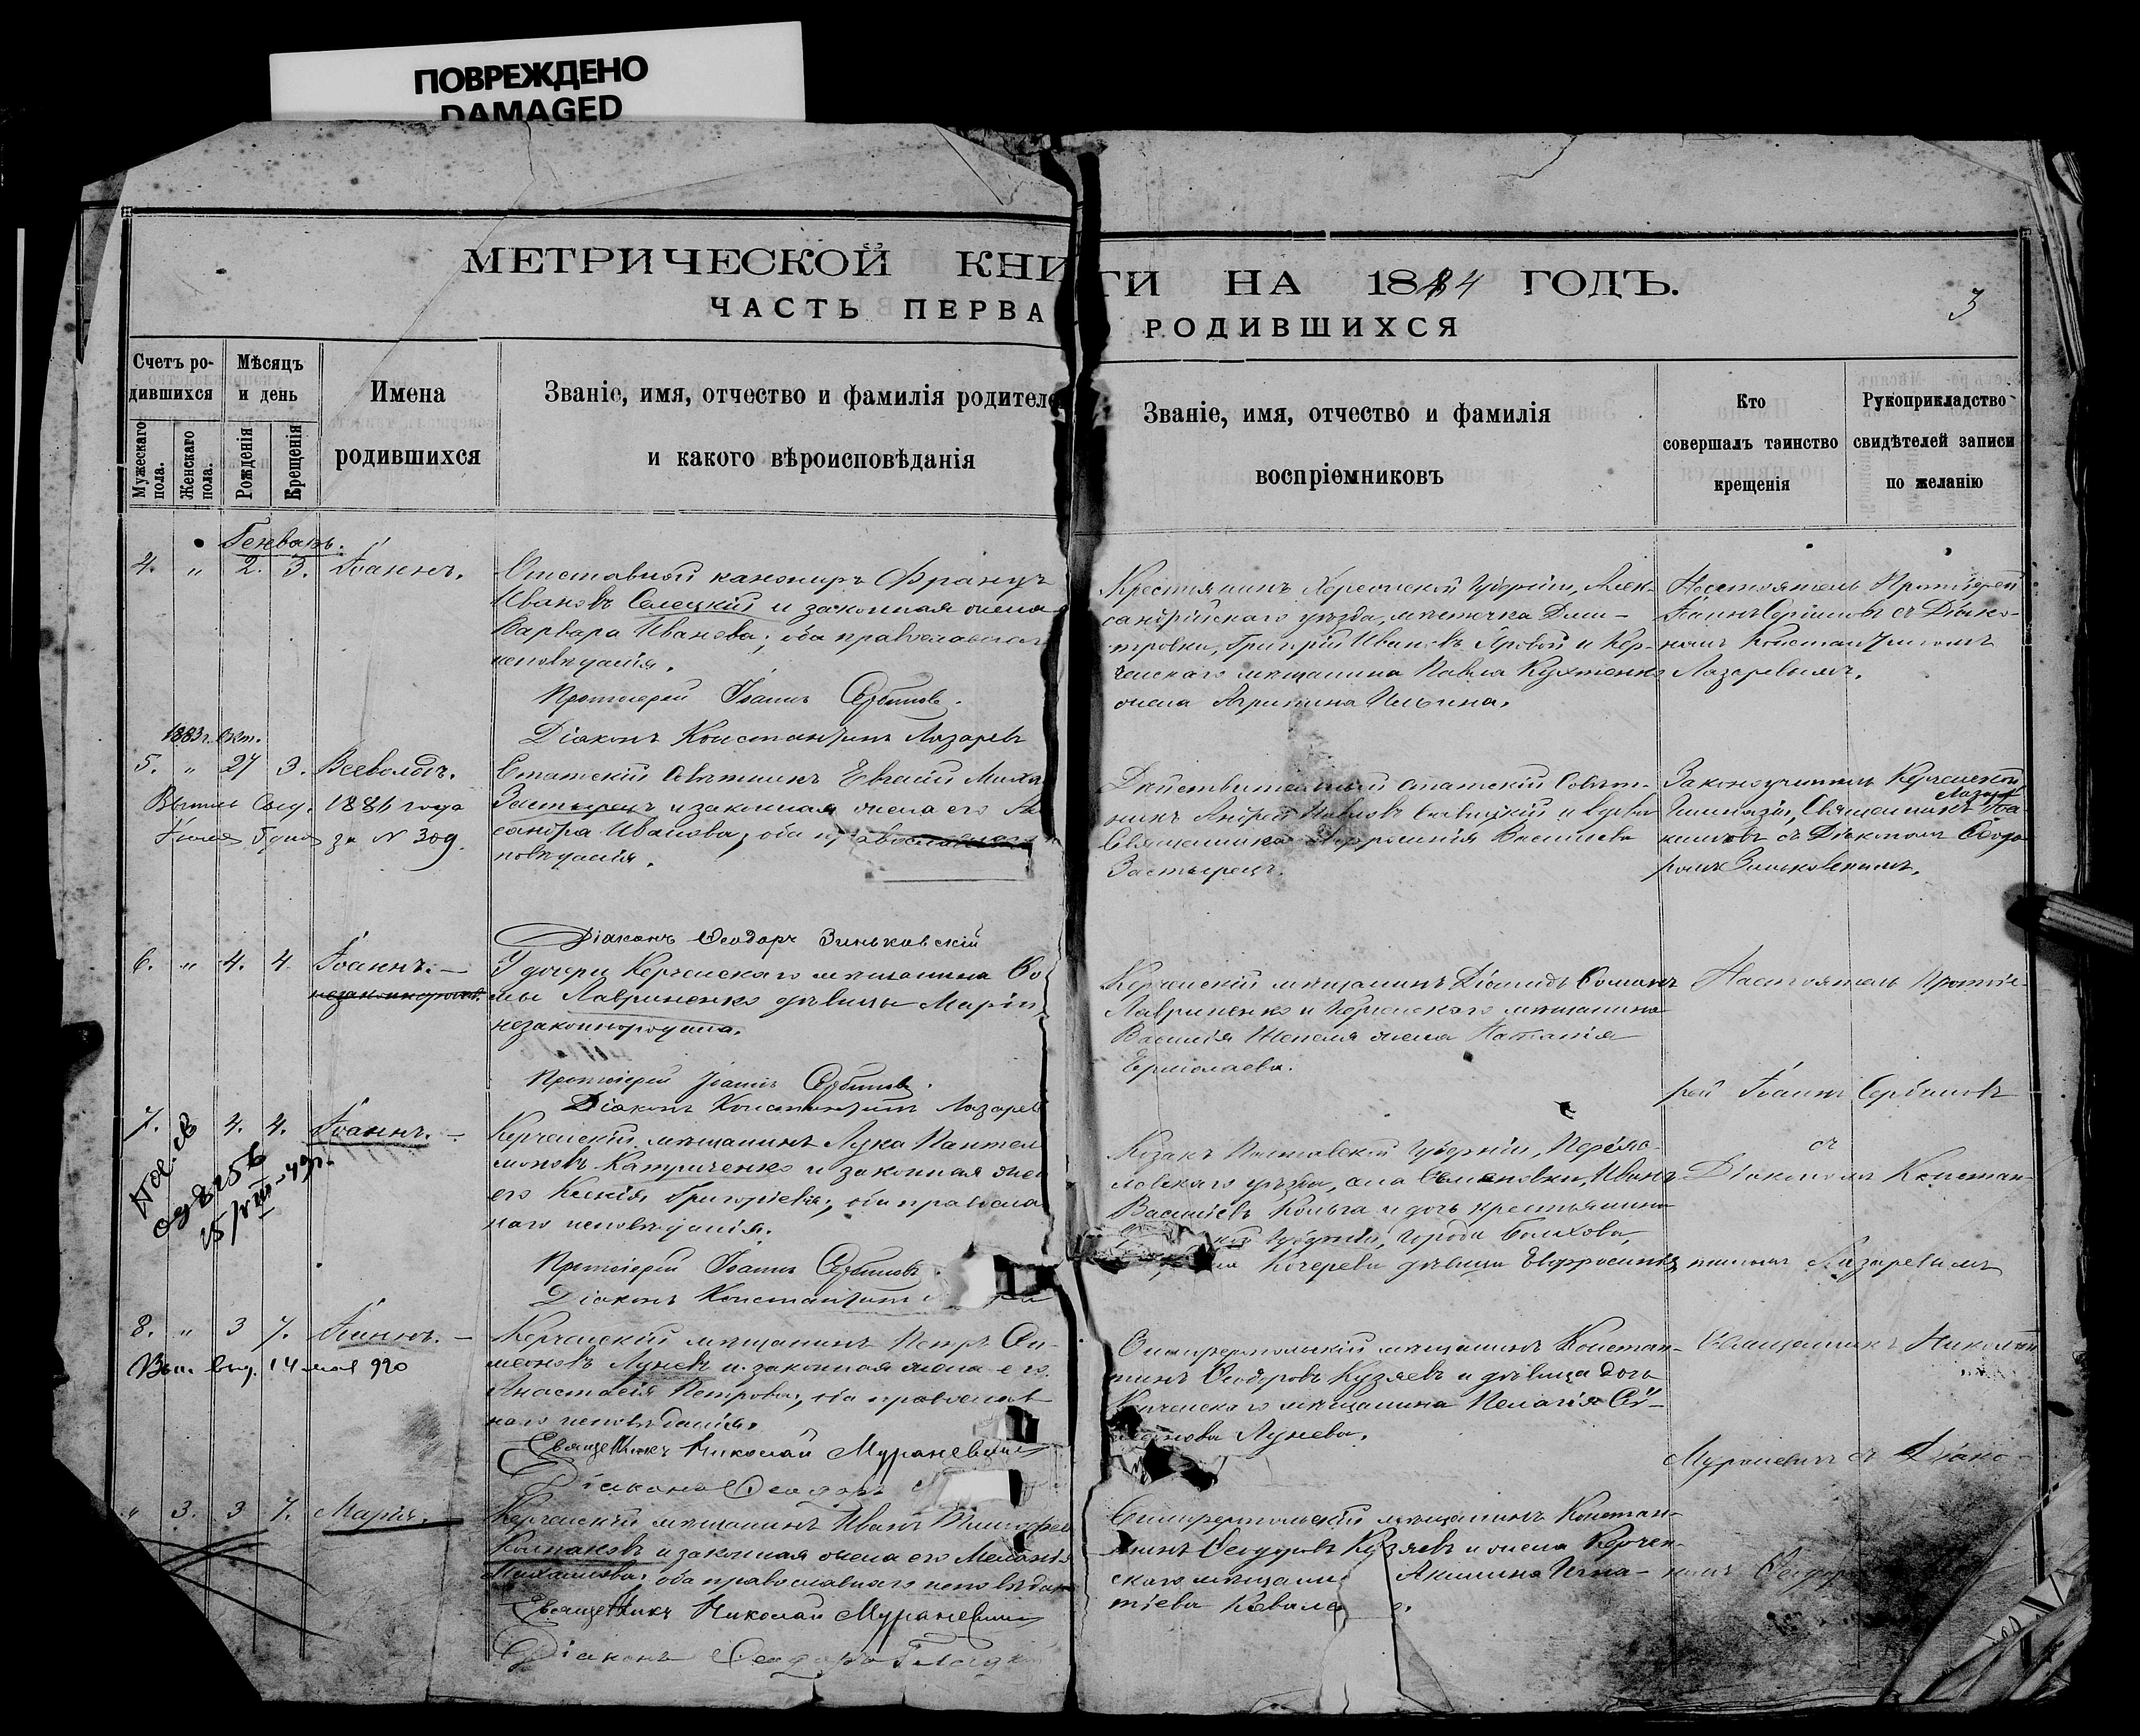 ПОВРЕЖДЕНО
DAMAGED
МЕТРИЧЕСКОЙ КНИГИ НА 1884 ГОДЪ.
3
ЧАСТЬ ПЕРВА РОДИВШИХСЯ
Счетъ ро-
дившихся
Мужескаго
пола.
Женскаго
пола.
Мѣсяцъ
и день
Рожденія
Крещенія
Имена
родившихся
Званіе, имя, отчество и фамилія родителе
и какого вѣроисповѣданія
Званіе, имя, отчество и фамилія
воспріемниковъ
Кто
совершалъ таинство
крещенія
Рукоприкладство
свидѣтелей записи
по желанію
Генварь.
4. " 2. 3. Іоаннъ.
Отставной канониръ Францъ
Ивановъ Селецкій и законная жена
Варвара Иванова; оба православнаго
исповѣданія.
Протоіерей Іоаннъ Сербиновъ.
Діаконъ Константинъ Лазаревъ
Крестьянинъ Херсонской Губерніи, Алек-
сандрійскаго уѣзда, мѣстечка Дми-
тровки, Григорій Ивановъ Яровой и Кер-
ченскаго мѣщанина Павла Кухтенко
жена Агрипина Ильина.
Настоятель Протоіерей
Іоаннъ Сербиновъ съ Діако-
номъ Константиномъ
Лазаревымъ.
1883 г. Окт.
5. " 27 3. Всеволодъ.
Выпись выд. 1886 года
за № 309.
Статскій Совѣтникъ Евгеній Миха
Застырецъ и законная жена его Ле
сандра Иванова; оба православнаго
повѣданія.
Діаконъ Ѳеодоръ Зиньковскій
Дѣйствительный Статскій Совѣт-
никъ Андрей Павловъ и вдова
Священника Евфросинія Васильева
Застырецъ.
Законоучитель Керченской
Гимназіи, Священникъ
съ Діакономъ Ѳеодо-
ромъ Зиньковскимъ.
6. " 4. 4. Іоаннъ. —
незаконнорожд.
У дочери Керченскаго мѣщанина Ѳо
мы Лавриненко дѣвицы Маріи,
незаконнорождена.
Протоіерей Іоаннъ Сербиновъ.
Діаконъ Константинъ Лазаревъ
Керченскій мѣщанинъ Діомидъ Ѳоминъ
Лавриненко и Керченскаго мѣщанина
Василія жена Наталія
Ермолаева.
Настоятель Протоіе-
рей Іоаннъ Сербиновъ
7. 4. 4. Іоаннъ. —
Керченскій мѣщанинъ Лука Пантел
моновъ Катриченко и законная жен
его Ксенія Григорьева; оба правосла
наго исповѣданія.
Протоіерей Іоаннъ Сербиновъ
Діаконъ Константинъ
Козакъ Полтавской Губерніи, Переяс-
лавскаго уѣзда, села Семеновки, Иванъ
Васильевъ Копыча и дочь крестьянина
Губерніи, города Болхова,
Кочерева дѣвица Евфросинія
съ
Діакономъ Констан-
тиномъ Лазаревымъ
8. " 3 7. Іоаннъ. —
Вып. выд. 14 мая 920
Керченскій мѣщанинъ Петръ Си-
меоновъ Луневъ и законная жена его
Анастасія Петрова; оба православ
наго исповѣданія.
Священникъ Николай Мураневичъ
Діаконъ Ѳеодоръ
Симферопольскій мѣщанинъ Констан-
тинъ Ѳеодоровъ Кузяевъ и дѣвица дочь
Керченскаго мѣщанина Пелагія Си-
меонова Лунева.
Священникъ Николай
Мураневичъ съ Діако-
" 3. 3 7. Марія.
Керченскій мѣщанинъ Иванъ Тимофеев
Колпаковъ и законная жена его Меланія
Михайлова; оба православнаго исповѣдан
Священникъ Николай Мураневичъ
Діаконъ Ѳеодоръ
Симферопольскій мѣщанинъ Констан-
тинъ Ѳеодоровъ Кузяевъ и жена Керчен-
скаго мѣщани Акилина Игна-
тіева
номъ Ѳеодор